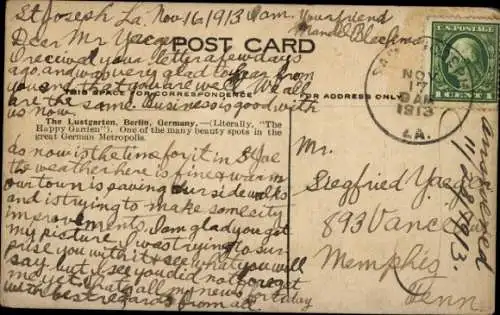 St Joseph La, Nov 16 1913 Sam. Your friend
Dear Mr Yaeger
POST CARD
I received your letter a few days
ago, and was very glad to hear from
THIS SPACE FOR CORRESPONDENCE
FOR ADDRESS ONLY
you are well. We all
are the same. Business is good with
us now.
The Lustgarten, Berlin, Germany.—(Literally, "The
Happy Garden"). One of the many beauty spots in the
great German Metropolis.
as now is the time for it in St Joe
the weather here is fine & warm
our town is paving our side walks
and is trying to make some city
improvements. I am glad you got
my picture. I was trying to sur-
prise you with it & see what you will
say but I see you did not forget
me yet. thats all my news for today
with best regards from all.
U.S. POSTAGE
NOV
17
8 AM
1913
LA.
Mr.
Siegfried Yaeger
893 Vance
Memphis
Tenn.
answered
11/23/13.